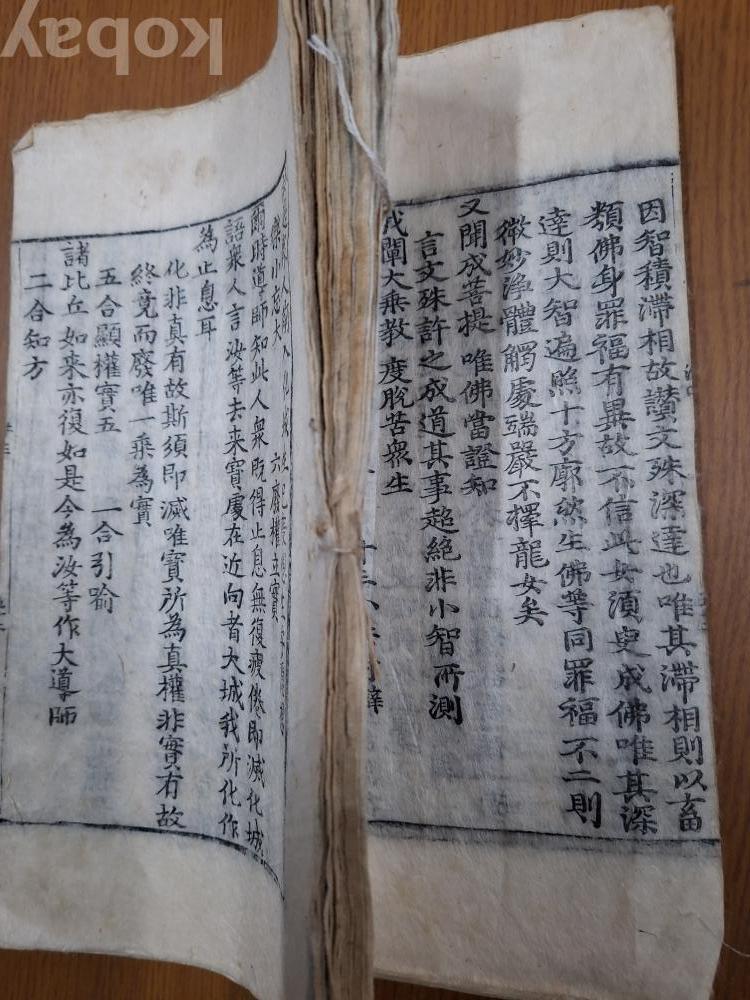 kobay
因智積滯相故讃文殊深達也唯其滯相則以畜
類佛身罪福有異故不信此女須臾成佛唯其深
達則大智遍照十方廓然生佛等同罪福不二則
微妙淨體觸處端嚴不擇龍女矣
又聞成菩提 唯佛當證知
言文殊許之成道其事超絕非小智所測
我闡大乘教 度脫苦衆生
傑小志大 六廢權立實
爾時導師知此人衆既得止息無復疲倦即滅化城
語衆人言汝等去来寶處在近向者大城我所化作
為止息耳
化非真有故斯須即滅唯寶所為真權非實有故
終竟而廢唯一乘為實
五合顯權實五 一合引喻
諸比丘如来亦復如是今為汝等作大導師
二合知方